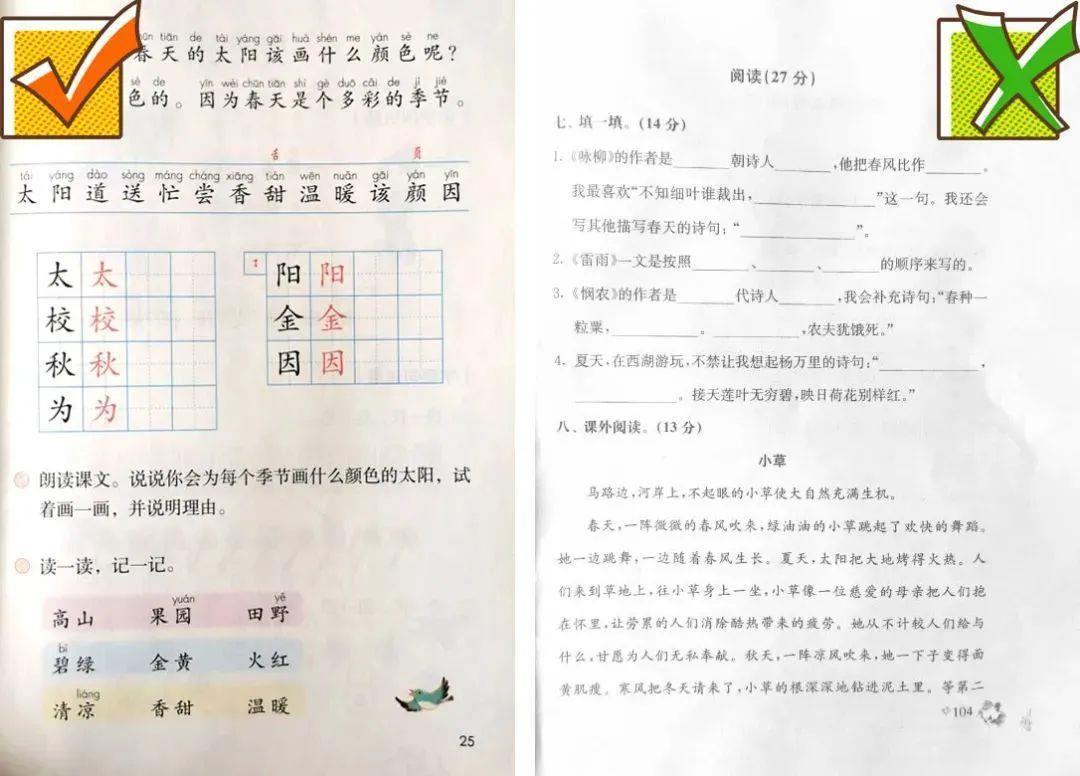 chūn tiān de tài yáng gāi huà shén me yán sè ne
春天的太阳该画什么颜色呢？
sè de yīn wèi chūn tiān shì gè duō cǎi de jì jié
色的。因为春天是个多彩的季节。
舌 页
tài yáng dào sòng máng cháng xiāng tián wēn nuǎn gāi yán yīn
太阳道送忙尝香甜温暖该颜因
太太
校校
秋秋
为为
阳阳
金金
因因
朗读课文。说说你会为每个季节画什么颜色的太阳，试
着画一画，并说明理由。
读一读，记一记。
yuán yě
高山 果园 田野
bì
碧绿 金黄 火红
liáng
清凉 香甜 温暖
25
阅读(27分)
七、填一填。(14分)
1.《咏柳》的作者是______朝诗人______,他把春风比作______。
我最喜欢“不知细叶谁裁出,____________”这一句。我还会
写其他描写春天的诗句:“____________”。
2.《雷雨》一文是按照______、______、______的顺序来写的。
3.《悯农》的作者是______代诗人______,我会补充诗句:“春种一
粒粟,__________。__________,农夫犹饿死。”
4. 夏天,在西湖游玩,不禁让我想起杨万里的诗句:“__________,
__________。接天莲叶无穷碧,映日荷花别样红。”
八、课外阅读。(13分)
小草
马路边,河岸上,不起眼的小草使大自然充满生机。
春天,一阵微微的春风吹来,绿油油的小草跳起了欢快的舞蹈。
她一边跳舞,一边随着春风生长。夏天,太阳把大地烤得火热。人
们来到草地上,往小草身上一坐,小草像一位慈爱的母亲把人们抱
在怀里,让劳累的人们消除酷热带来的疲劳。她从不计较人们给与
什么,甘愿为人们无私奉献。秋天,一阵凉风吹来,她一下子变得面
黄肌瘦。寒风把冬天请来了,小草的根深深地钻进泥土里。等第二
104